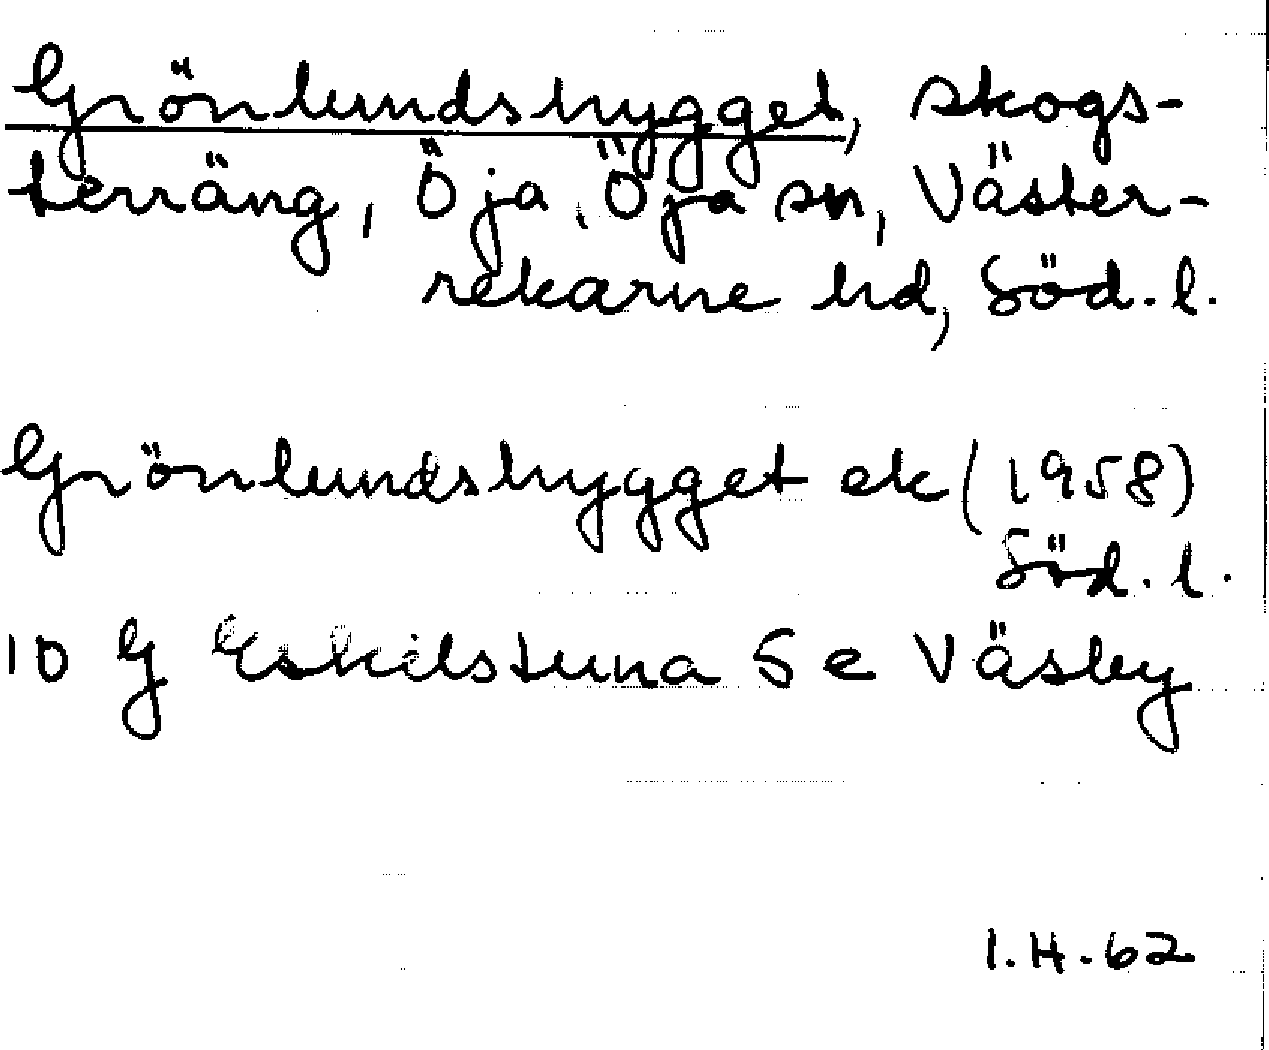 Grönlundshygget, skogs-
terräng, Öja, Öja sn, Väster-
rekarne hd, Söd. l.
Grönlundshygget ek (1958)
Söd. l.
10 G Eskilstuna S e Väsby
I.H.62